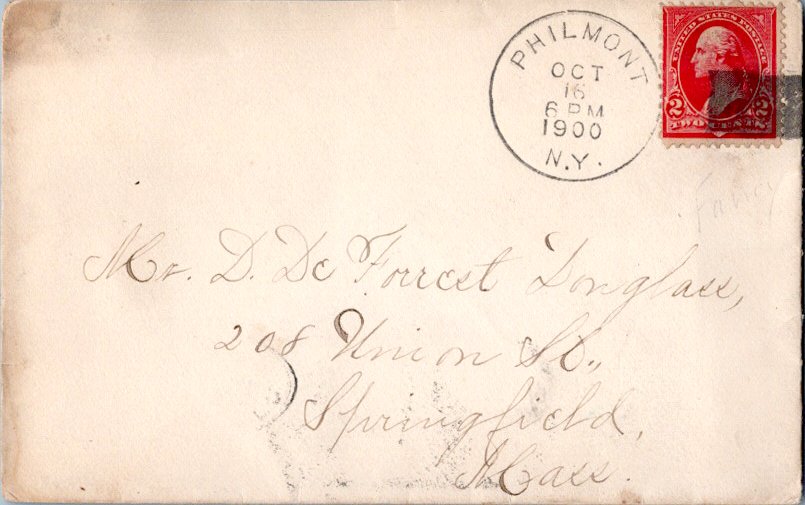 PHILMONT
OCT
16
6 PM
1900
N.Y.
UNITED STATES POSTAGE
2 2
TWO CENTS
Fancy
Mr. D. De Forrest Douglass,
208 Union St.,
Springfield,
Mass.